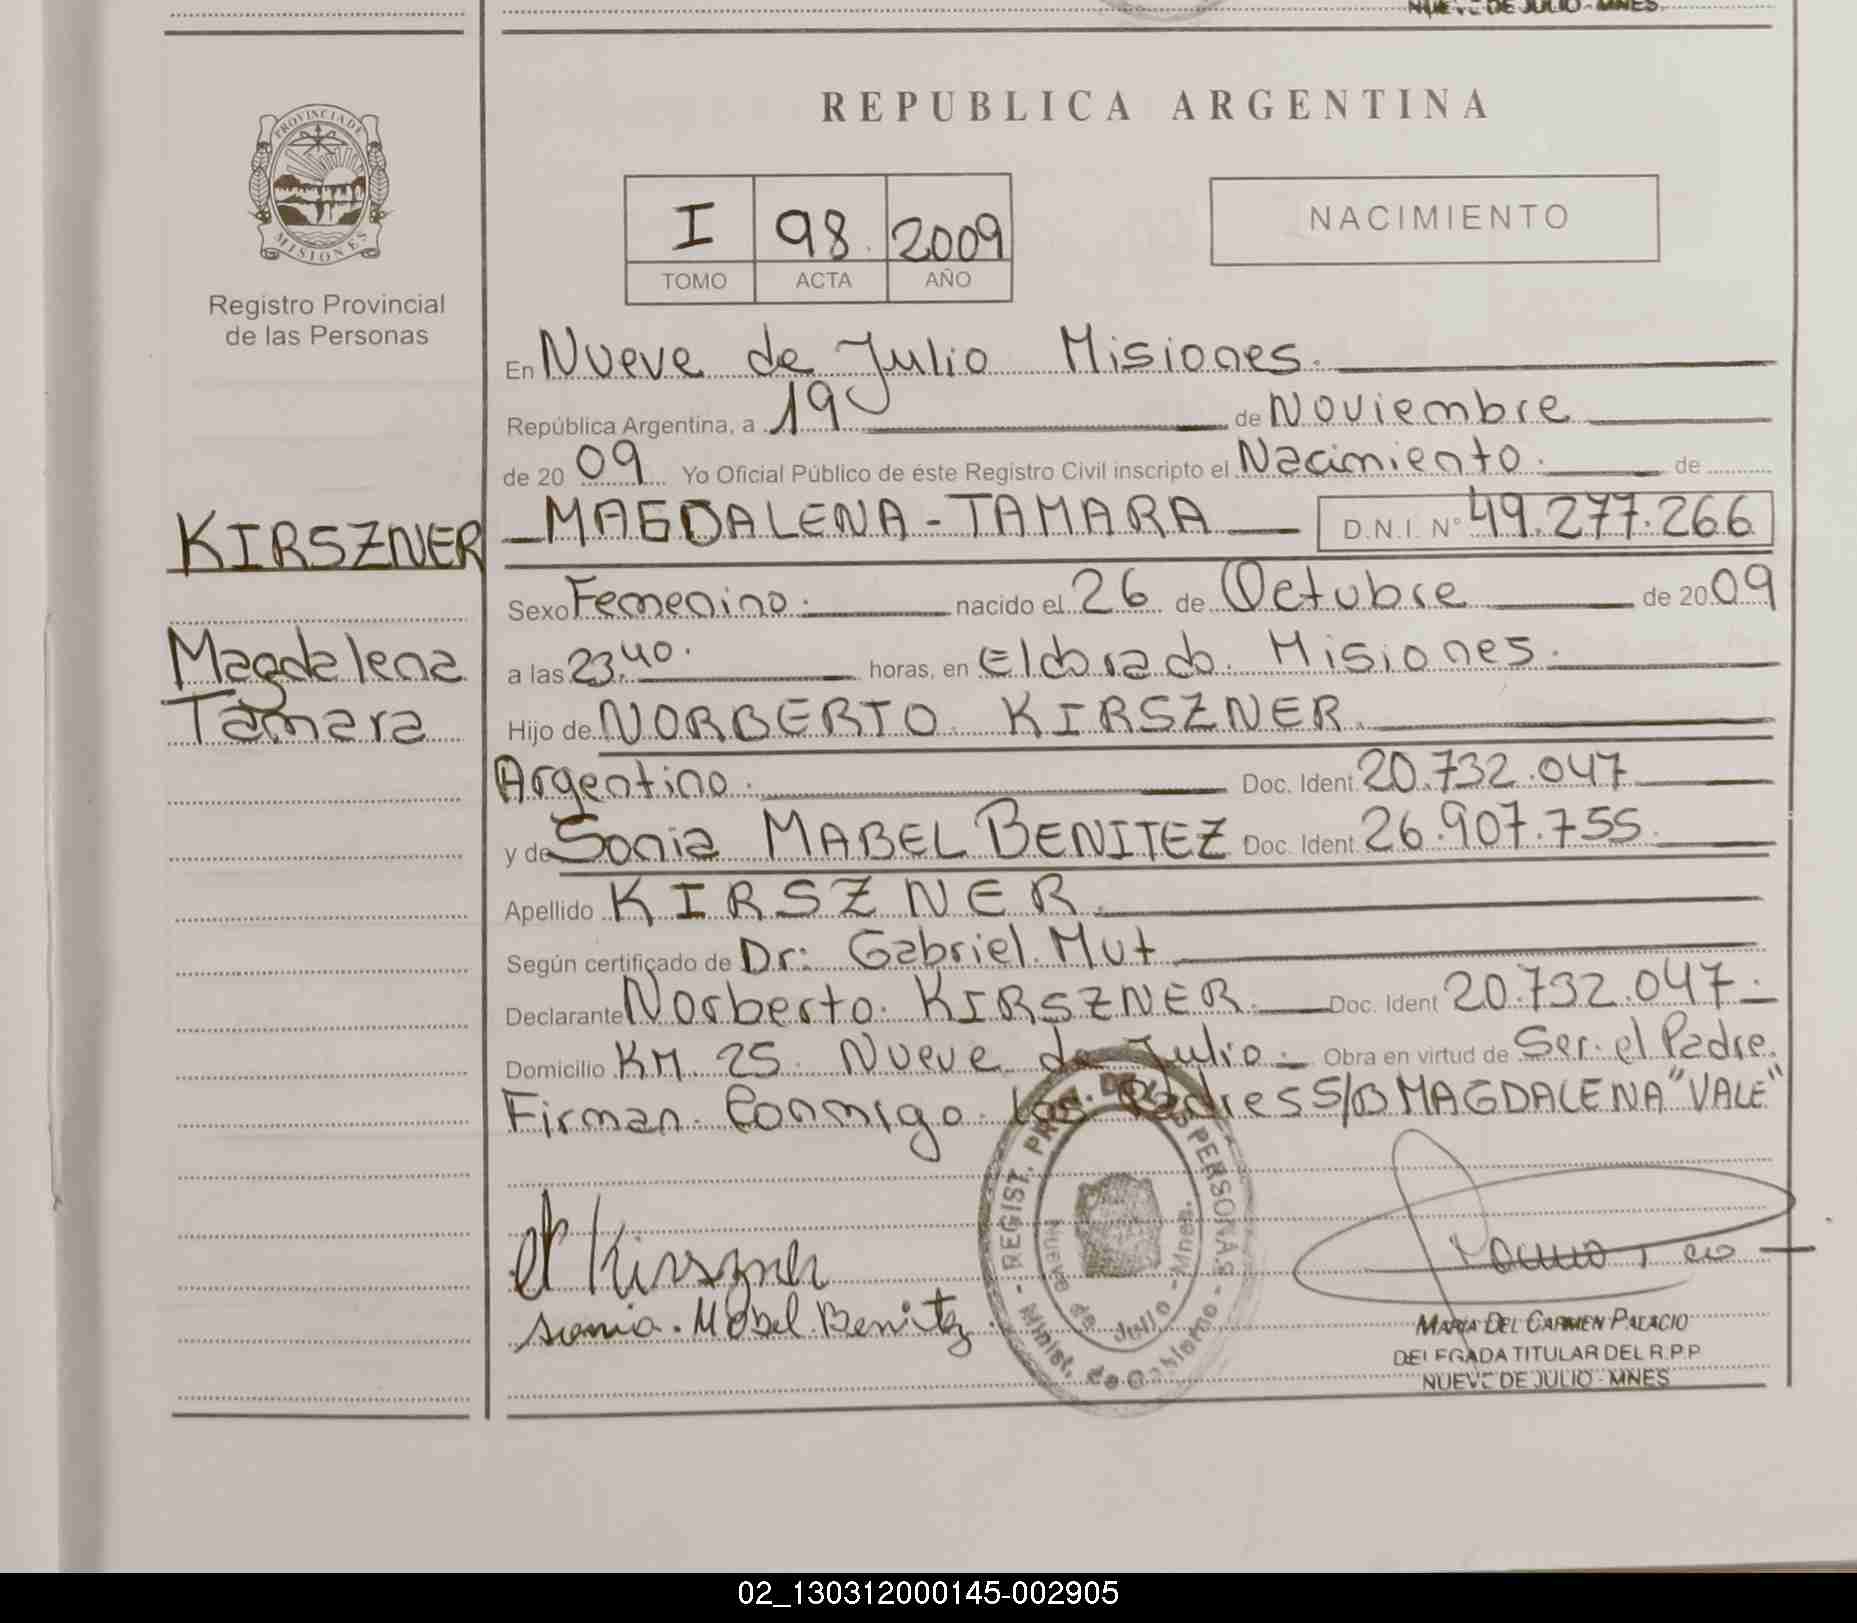 NUEVE DE JULIO - MNES.
PROVINCIA DE
MISIONES
Registro Provincial
de las Personas
REPUBLICA ARGENTINA
I 98. 2009
TOMO ACTA AÑO
NACIMIENTO
En Nueve de Julio Misiones.
República Argentina, a 19 de Noviembre
de 20 09 Yo Oficial Público de éste Registro Civil inscripto el Nacimiento. de
KIRSZNER MAGDALENA - TAMARA D.N.I. N° 49.277.266
Sexo Femenino. nacido el 26 de Octubre de 20 09
Magdalena
a las 23.40. horas, en Eldorado. Misiones.
Tamara
Hijo de NORBERTO KIRSZNER.
Argentino. Doc. Ident. 20.732.047
y de Sonia MABEL BENITEZ Doc. Ident. 26.907.755.
Apellido KIRSZNER.
Según certificado de Dr: Gabriel Mut
Declarante Norberto KIRSZNER. Doc. Ident 20.732.047.
Domicilio KM. 25. Nueve de Julio. Obra en virtud de Ser el Padre.
Firman Conmigo los Padres S/B MAGDALENA "VALE"
REGIST. PROV. DE LAS PERSONAS
Nueve de Julio - Mnes.
Minist. de Gobierno
Kirszner
Sonia Mabel Benitez
MARIA DEL CARMEN PALACIO
DELEGADA TITULAR DEL R.P.P
NUEVE DE JULIO - MNES
02_130312000145-002905